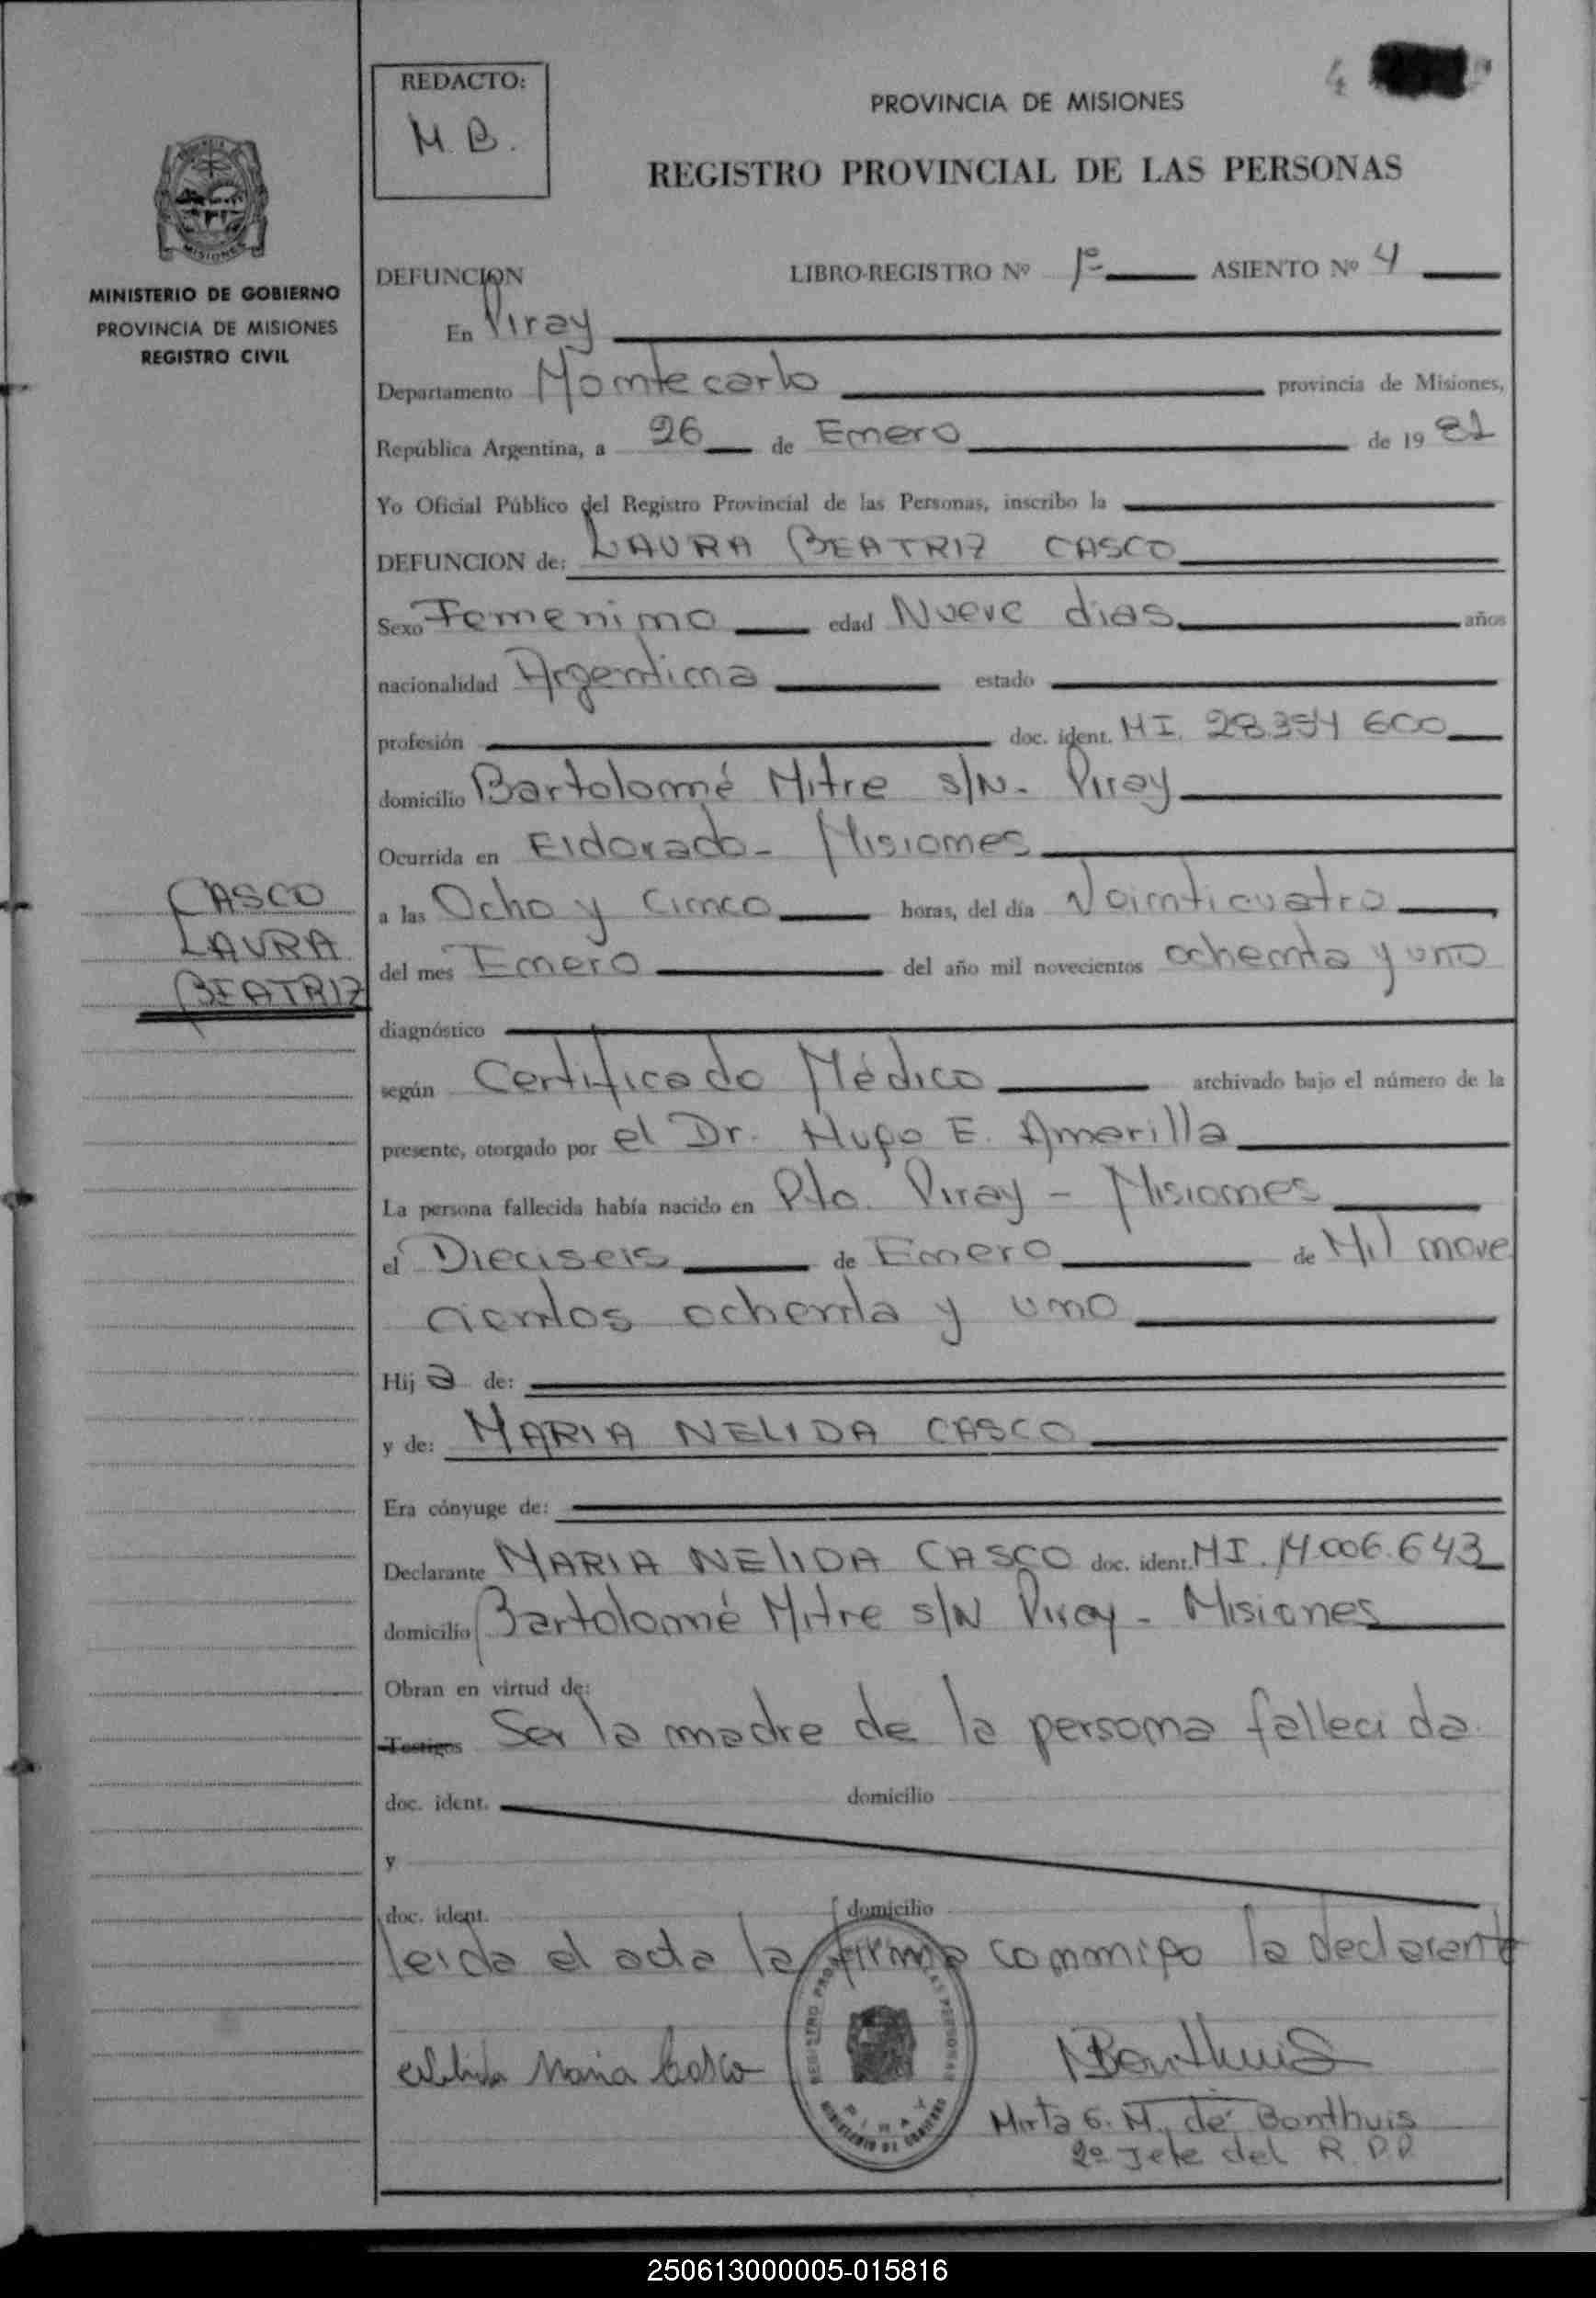 REDACTO:
M. B.
4
PROVINCIA DE MISIONES
REGISTRO PROVINCIAL DE LAS PERSONAS
MISIONES
MINISTERIO DE GOBIERNO
PROVINCIA DE MISIONES
REGISTRO CIVIL
DEFUNCION LIBRO-REGISTRO Nº 1º ASIENTO Nº 4
En Piray
Departamento Montecarlo provincia de Misiones,
República Argentina, a 26 de Enero de 19 81
Yo Oficial Público del Registro Provincial de las Personas, inscribo la
DEFUNCION de: LAURA BEATRIZ CASCO
Sexo Femenino edad Nueve dias años
nacionalidad Argentina estado
profesión doc. ident. MI. 28.394 600
domicilio Bartolomé Mitre s/N- Piray
Ocurrida en Eldorado- Misiones
CASCO
LAURA
BEATRIZ
a las Ocho y Cinco horas, del día Veinticuatro
del mes Enero del año mil novecientos ochenta y uno
diagnóstico
según Certificado Médico archivado bajo el número de la
presente, otorgado por el Dr. Hugo E. Amarilla
La persona fallecida había nacido en Pto. Piray - Misiones
el Dieciseis de Enero de Mil nove
cientos ochenta y uno
Hij a de:
y de: MARIA NELIDA CASCO
Era cónyuge de:
Declarante MARIA NELIDA CASCO doc. ident. MI. 14.006.643
domicilio Bartolomé Mitre s/N Piray - Misiones
Obran en virtud de:
Testigos Ser la madre de la persona fallecida.
doc. ident. domicilio
y
doc. ident. domicilio
leida el acta la firma conmigo la declarante
Nelida Maria Casco
REGISTRO PROVINCIAL DE LAS PERSONAS
PIRAY
MINISTERIO DE GOBIERNO
MBonthuis
Mirta G. M. de Bonthuis
2º Jefe del R.P.P.
250613000005-015816